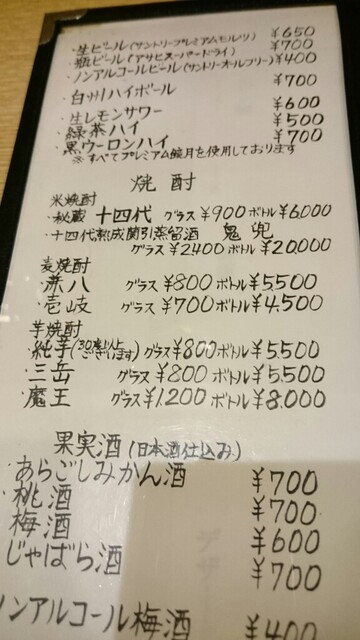 ・生ビール(サントリープレミアムモルツ) ¥650
・瓶ビール(アサヒスーパードライ) ¥700
・ノンアルコールビール(サントリーオールフリー) ¥400
・白州ハイボール ¥700
・生レモンサワー ¥600
・緑茶ハイ ¥500
・黒ウーロンハイ ¥700
※すべてプレミアム鏡月を使用しております
焼酎
米焼酎
・秘蔵 十四代 グラス¥900 ボトル¥6,000
・十四代熟成蘭引蒸留酒 鬼兜
グラス¥2,400 ボトル¥20,000
麦焼酎
・兼八 グラス¥800 ボトル¥5,500
・壱岐 グラス¥700 ボトル¥4,500
芋焼酎
・純芋(30種以上ございます) グラス¥800 ボトル¥5,500
・三岳 グラス¥800 ボトル¥5,500
・魔王 グラス¥1,200 ボトル¥8,000
果実酒(日本酒仕込み)
・あらごしみかん酒 ¥700
・桃酒 ¥700
・梅酒 ¥600
・じゃばら酒 ¥700
ノンアルコール梅酒 ¥400